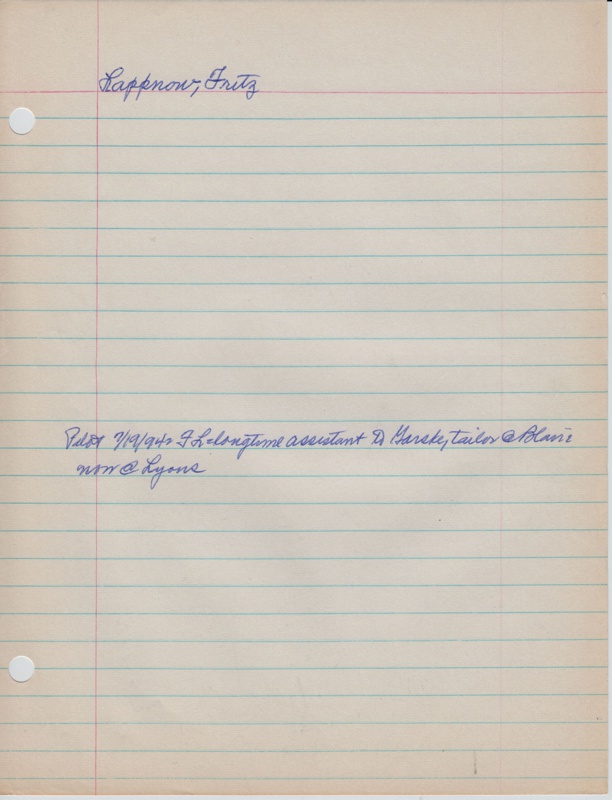 Lappnow, Fritz
Pilot 7/19/94: FL-longtime assistant to Garske, tailor @ Blair:
now @ Lyons